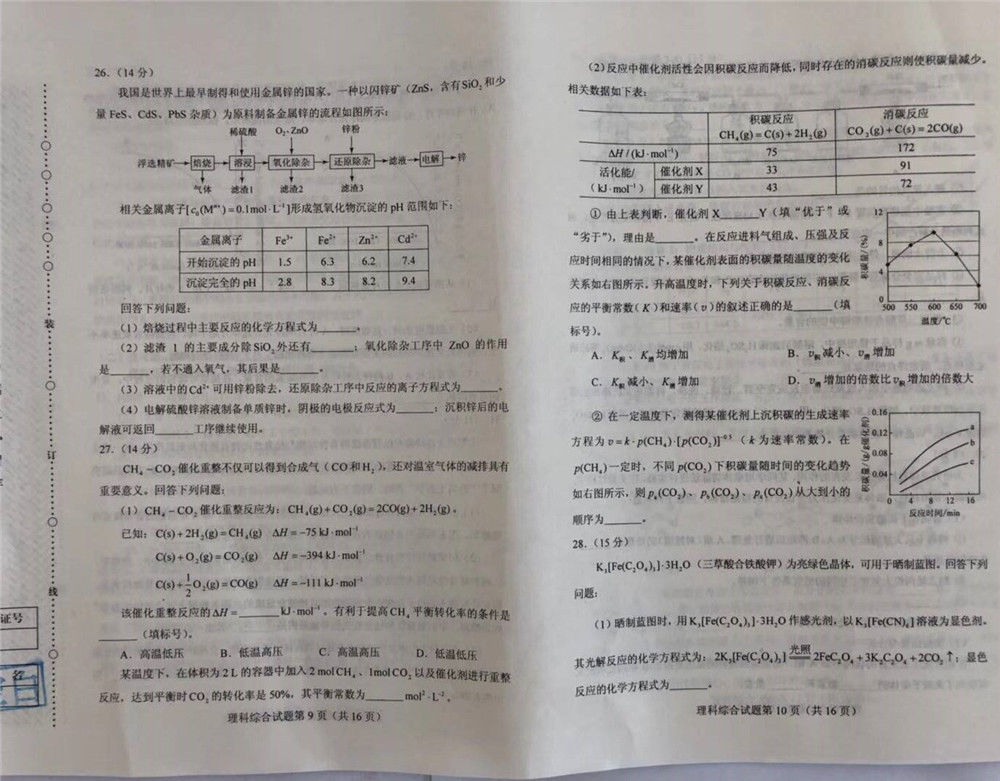 26.（14分）
我国是世界上最早制得和使用金属锌的国家。一种以闪锌矿（ZnS，含有SiO₂和少
量FeS、CdS、PbS杂质）为原料制备金属锌的流程如图所示：
稀硫酸 O₂、ZnO 锌粉
浮选精矿 焙烧 溶浸 氧化除杂 还原除杂 滤液 电解 锌
气体 滤渣1 滤渣2 滤渣3
相关金属离子[c₀(Mⁿ⁺)=0.1mol·L⁻¹]形成氢氧化物沉淀的pH范围如下：
金属离子 Fe³⁺ Fe²⁺ Zn²⁺ Cd²⁺
开始沉淀的pH 1.5 6.3 6.2 7.4
沉淀完全的pH 2.8 8.3 8.2 9.4
回答下列问题：
（1）焙烧过程中主要反应的化学方程式为______。
（2）滤渣1的主要成分除SiO₂外还有______；氧化除杂工序中ZnO的作用
是______，若不通入氧气，其后果是______。
（3）溶液中的Cd²⁺可用锌粉除去，还原除杂工序中反应的离子方程式为______。
（4）电解硫酸锌溶液制备单质锌时，阴极的电极反应式为______；沉积锌后的电
解液可返回______工序继续使用。
27.（14分）
CH₄-CO₂催化重整不仅可以得到合成气（CO和H₂），还对温室气体的减排具有
重要意义。回答下列问题：
（1）CH₄-CO₂催化重整反应为：CH₄(g)+CO₂(g)=2CO(g)+2H₂(g)。
已知：C(s)+2H₂(g)=CH₄(g) ΔH=-75 kJ·mol⁻¹
C(s)+O₂(g)=CO₂(g) ΔH=-394 kJ·mol⁻¹
C(s)+1/2O₂(g)=CO(g) ΔH=-111 kJ·mol⁻¹
该催化重整反应的ΔH=______kJ·mol⁻¹。有利于提高CH₄平衡转化率的条件是
______（填标号）。
A．高温低压 B．低温高压 C．高温高压 D．低温低压
某温度下，在体积为2 L的容器中加入2 mol CH₄、1mol CO₂以及催化剂进行重整
反应，达到平衡时CO₂的转化率是50%，其平衡常数为______mol²·L⁻²。
理科综合试题第9页（共16页）
装
订
线
证号
(2)反应中催化剂活性会因积碳反应而降低，同时存在的消碳反应则使积碳量减少。
相关数据如下表：
积碳反应 CH₄(g)=C(s)+2H₂(g) 消碳反应 CO₂(g)+C(s)=2CO(g)
ΔH/(kJ·mol⁻¹) 75 172
活化能/(kJ·mol⁻¹) 催化剂X 33 91
催化剂Y 43 72
①由上表判断，催化剂X______Y（填“优于”或
“劣于”），理由是______。在反应进料气组成、压强及反
应时间相同的情况下，某催化剂表面的积碳量随温度的变化
关系如右图所示。升高温度时，下列关于积碳反应、消碳反
应的平衡常数(K)和速率(v)的叙述正确的是______（填
标号）。
A．K积、K消均增加 B．v积减小、v消增加
C．K积减小、K消增加 D．v消增加的倍数比v积增加的倍数大
积碳量/(%)
12
8
4
0
500 550 600 650 700
温度/℃
②在一定温度下，测得某催化剂上沉积碳的生成速率
方程为v=k·p(CH₄)·[p(CO₂)]⁻⁰·⁵（k为速率常数）。在
p(CH₄)一定时，不同p(CO₂)下积碳量随时间的变化趋势
如右图所示，则pₐ(CO₂)、p_b(CO₂)、p_c(CO₂)从大到小的
顺序为______。
积碳量/(g/g催化剂)
0.16
0.12
0.08
0.04
a
b
c
0 4 8 12 16
反应时间/min
28.（15分）
K₃[Fe(C₂O₄)₃]·3H₂O（三草酸合铁酸钾）为亮绿色晶体，可用于晒制蓝图。回答下列
问题：
（1）晒制蓝图时，用K₃[Fe(C₂O₄)₃]·3H₂O作感光剂，以K₃[Fe(CN)₆]溶液为显色剂。
其光解反应的化学方程式为：2K₃[Fe(C₂O₄)₃] 光照 2FeC₂O₄+3K₂C₂O₄+2CO₂↑；显色
反应的化学方程式为______。
理科综合试题第10页（共16页）